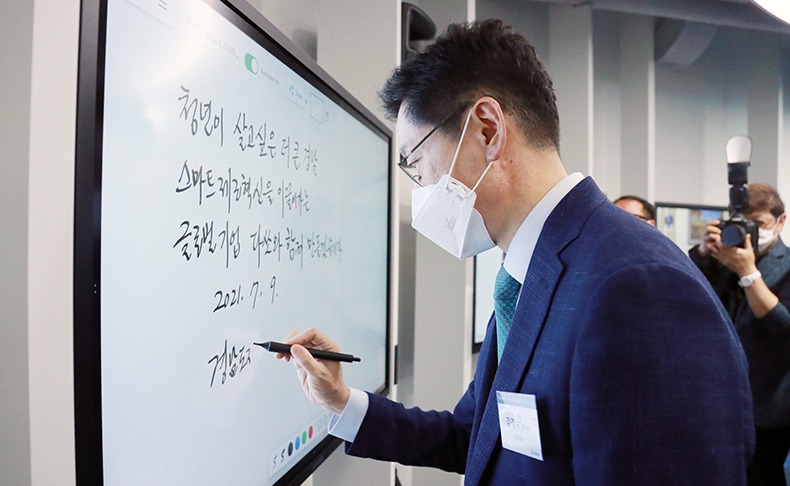 청년이 살고싶은 더 큰 경남
스마트제조혁신을 이끌
글로벌기업 다쏘와 함께 만들겠습니다
2021. 7. 9.
경남도지